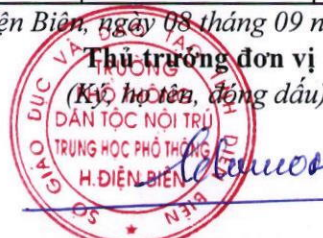 ện Biên, ngày 08 tháng 09 n
Thủ trưởng đơn vị
(Ký, họ tên, đóng dấu)
SỞ GIÁO DỤC VÀ ĐÀO TẠO TỈNH ĐIỆN BIÊN
TRƯỜNG
PHỔ THÔNG
DÂN TỘC NỘI TRÚ
TRUNG HỌC PHỔ THÔNG
H.ĐIỆN BIÊN